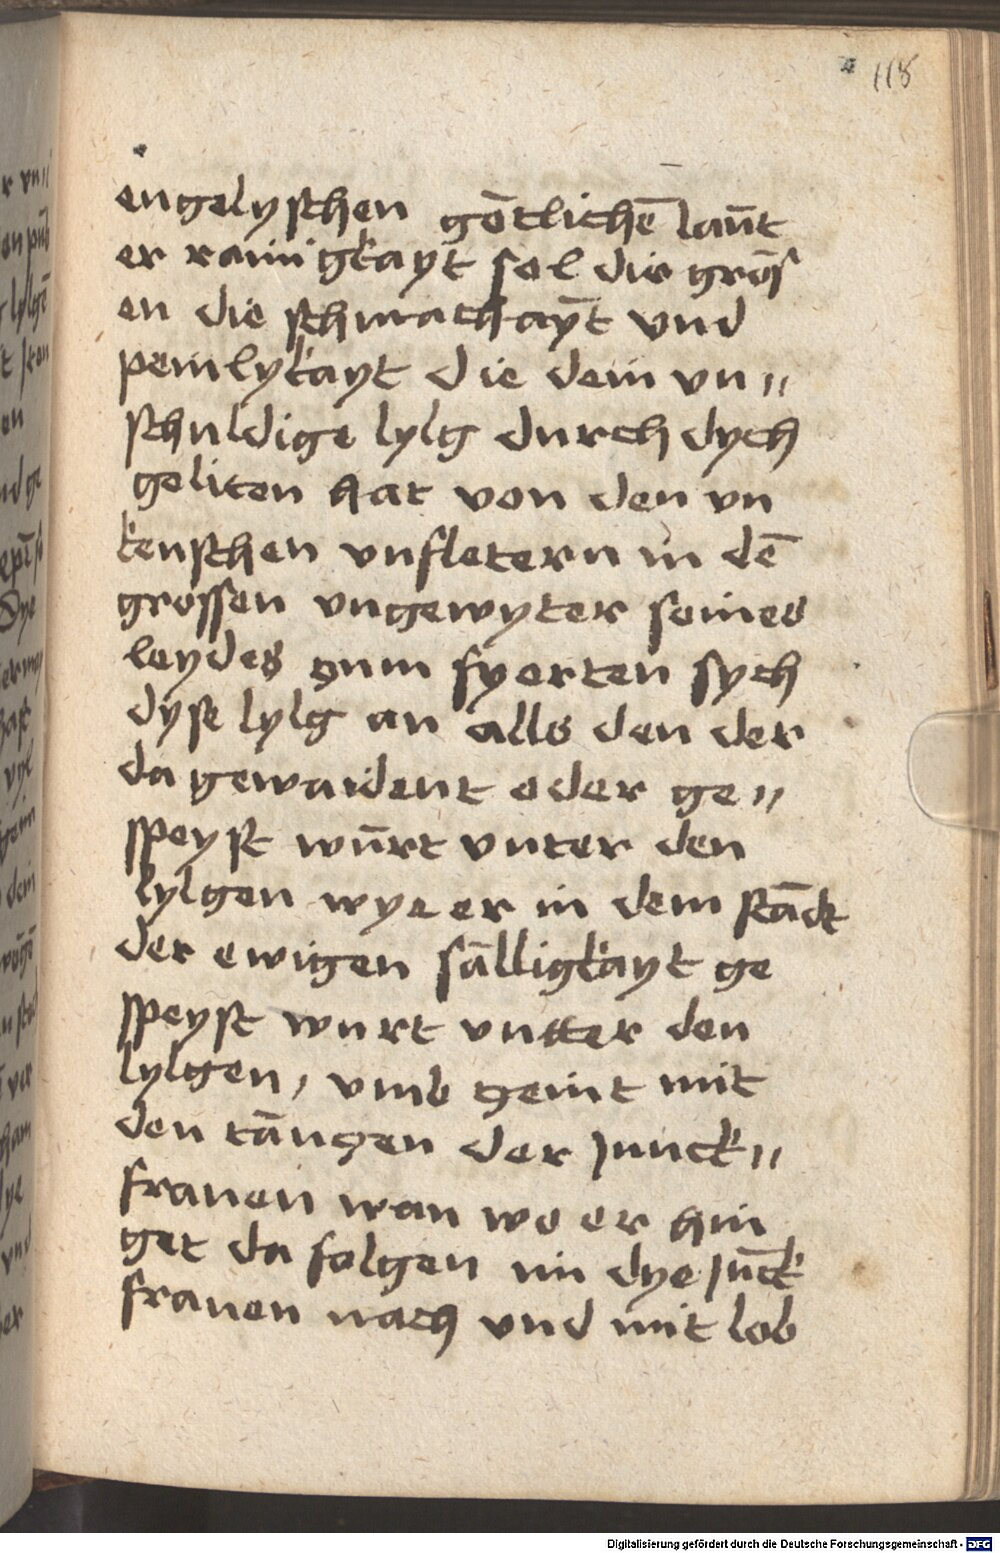 118
engelyschen gōtlichē laūt
er rainigkayt sol die grōs
en die schmachayt vnd
peinlykayt die dein vn〃
schuldige lylg durch dych
geliten hat von den vn
keuschen vnfletern in dē
grossen vngewyter seines
leydes zum fyerten sych
dyse lylg an alls den der
da gewaident oder ge〃
speyst wūrt vnter den
lylgen wye er in dem stādt
der ewigen sālligkayt ge
speyst wurt vntter den
lylgen, vmb zeint mit
den tānczen der Junck〃
frauen wan wo er hin
get da folgen im dye Jūck
frauen nach vnd mit lob
Digitalisierung gefördert durch die Deutsche Forschungsgemeinschaft - DFG